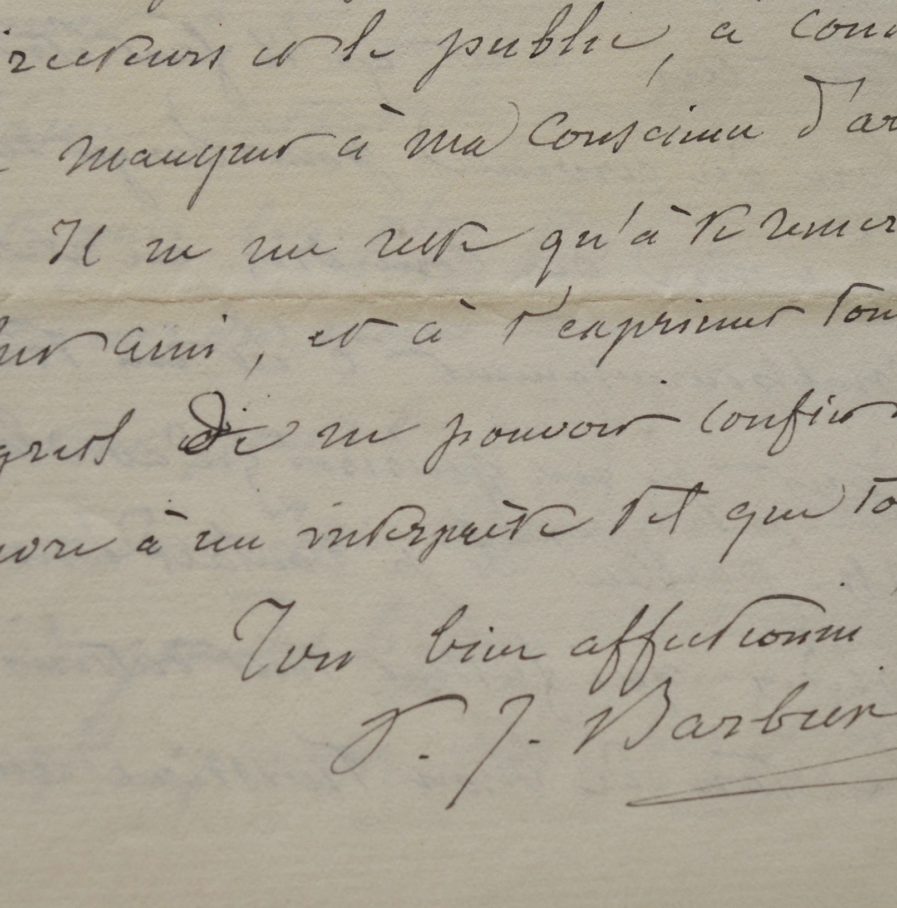 irecteurs et le public, à cond
manquer à ma conscience d'ar
Il ne me reste qu'à te remer
ami, et à t'exprimer tou
grets de ne pouvoir confier
à un interprète tel que to
Ton bien affectionné
J. Barbier